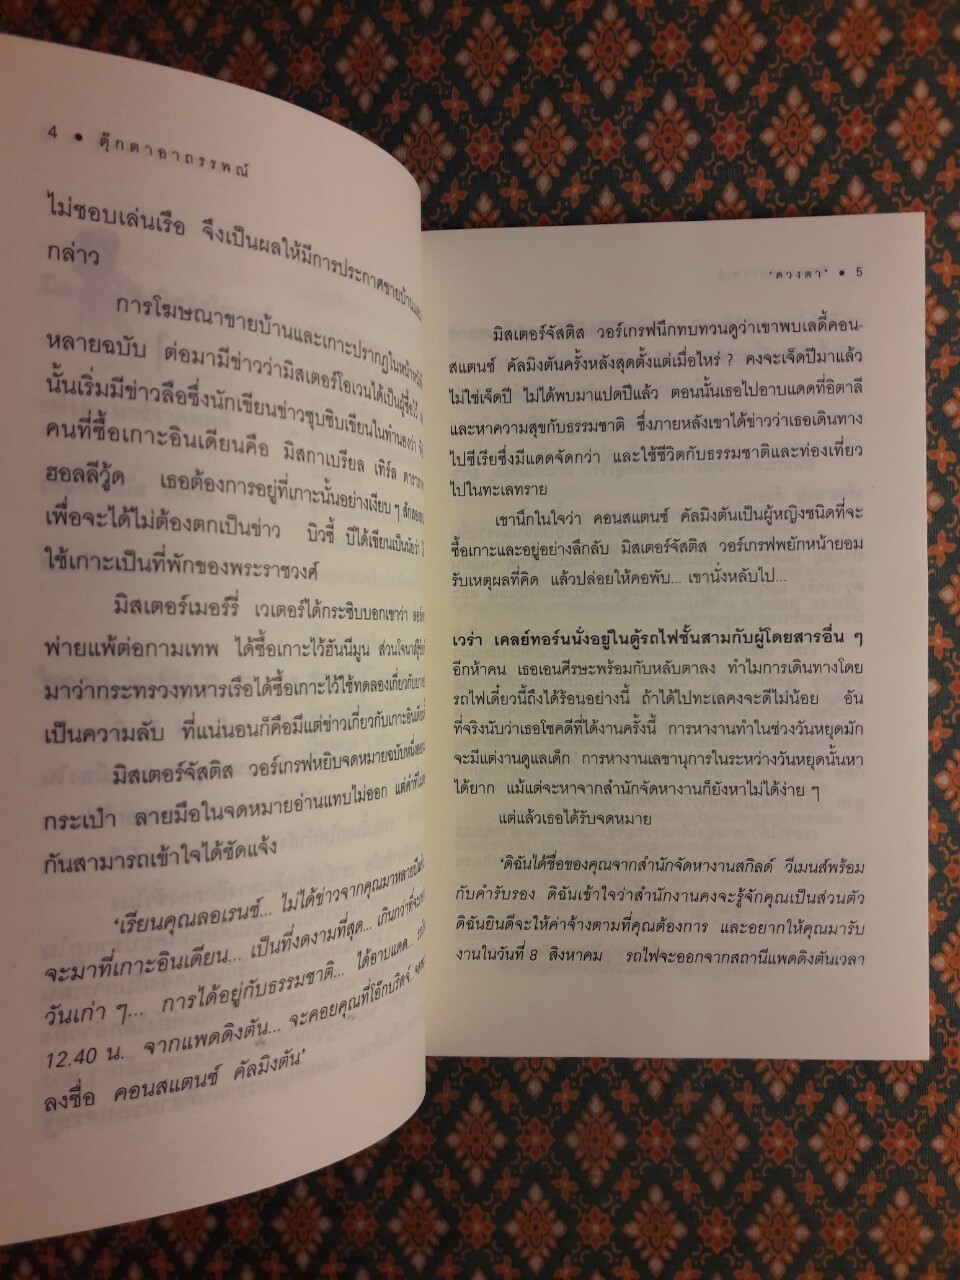 4 • ตุ๊กตาอาถรรพณ์
ไม่ชอบเล่นเรือ จึงเป็นผลให้มีการประกาศขายบ้านและ
กล่าว
การโฆษณาขายบ้านและเกาะปรากฏในหน้า
หลายฉบับ ต่อมามีข่าวว่ามิสเตอร์โอเวนได้เป็นผู้ซื้อไว้
นั้นเริ่มมีข่าวลือซึ่งนักเขียนข่าวซุบซิบเขียนในทำนองว่า
คนที่ซื้อเกาะอินเดียนคือ มิสกาเบรียล เทิร์ล
ฮอลลีวู้ด เธอต้องการอยู่ที่เกาะนั้นอย่างเงียบ ๆ
เพื่อจะได้ไม่ต้องตกเป็นข่าว บิวซี้ บีได้เขียนเป็นนัยว่า
ใช้เกาะเป็นที่พักของพระราชวงศ์
มิสเตอร์เมอร์รี่ เวเตอร์ได้กระซิบบอกเขาว่า
พ่ายแพ้ต่อกามเทพ ได้ซื้อเกาะไว้ฮันนีมูน
มาว่ากระทรวงทหารเรือได้ซื้อเกาะไว้ใช้ทดลองเกี่ยวกับ
เป็นความลับ ที่แน่นอนก็คือมีแต่ข่าวเกี่ยวกับเกาะ
มิสเตอร์จัสติส วอร์เกรฟหยิบจดหมายฉบับหนึ่ง
กระเป๋า ลายมือในจดหมายอ่านแทบไม่ออก
กันสามารถเข้าใจได้ชัดแจ้ง
‘เรียนคุณลอเรนซ์... ไม่ได้ข่าวจากคุณมาหลายปี
จะมาที่เกาะอินเดียน... เป็นที่งดงามที่สุด...
วันเก่า ๆ... การได้อยู่กับธรรมชาติ... ได้อาบแดด...
12.40 น. จากแพดดิงตัน... จะคอยคุณที่โอ๊กบริดจ์
ลงชื่อ คอนสแตนซ์ คัลมิงตัน’
‘ดวงตา’ • 5
มิสเตอร์จัสติส วอร์เกรฟนึกทบทวนดูว่าเขาพบเลดี้คอน-
สแตนซ์ คัลมิงตันครั้งหลังสุดตั้งแต่เมื่อไหร่ ? คงจะเจ็ดปีมาแล้ว
ไม่ใช่เจ็ดปี ไม่ได้พบมาแปดปีแล้ว ตอนนั้นเธอไปอาบแดดที่อิตาลี
และหาความสุขกับธรรมชาติ ซึ่งภายหลังเขาได้ข่าวว่าเธอเดินทาง
ไปซีเรียซึ่งมีแดดจัดกว่า และใช้ชีวิตกับธรรมชาติและท่องเที่ยว
ไปในทะเลทราย
เขานึกในใจว่า คอนสแตนซ์ คัลมิงตันเป็นผู้หญิงชนิดที่จะ
ซื้อเกาะและอยู่อย่างลึกลับ มิสเตอร์จัสติส วอร์เกรฟพยักหน้ายอม
รับเหตุผลที่คิด แล้วปล่อยให้คอพับ... เขานั่งหลับไป...
เวร่า เคลย์ทอร์นนั่งอยู่ในตู้รถไฟชั้นสามกับผู้โดยสารอื่น ๆ
อีกห้าคน เธอเอนศีรษะพร้อมกับหลับตาลง ทำไมการเดินทางโดย
รถไฟเดี๋ยวนี้ถึงได้ร้อนอย่างนี้ ถ้าได้ไปทะเลคงจะดีไม่น้อย อัน
ที่จริงนับว่าเธอโชคดีที่ได้งานครั้งนี้ การหางานทำในช่วงวันหยุดมัก
จะมีแต่งานดูแลเด็ก การหางานเลขานุการในระหว่างวันหยุดนั้นหา
ได้ยาก แม้แต่จะหาจากสำนักจัดหางานก็ยังหาไม่ได้ง่าย ๆ
แต่แล้วเธอได้รับจดหมาย
‘ดิฉันได้ชื่อของคุณจากสำนักจัดหางานสกิลด์ วีเมนส์พร้อม
กับคำรับรอง ดิฉันเข้าใจว่าสำนักงานคงจะรู้จักคุณเป็นส่วนตัว
ดิฉันยินดีจะให้ค่าจ้างตามที่คุณต้องการ และอยากให้คุณมารับ
งานในวันที่ 8 สิงหาคม รถไฟจะออกจากสถานีแพดดิงตันเวลา